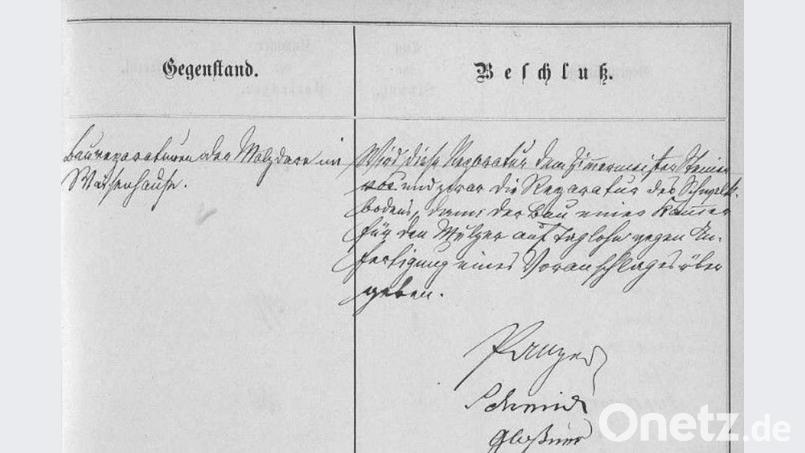 Gegenstand.
Beschluß.
Baureparaturen der Malzdarre im
Wird diese Reparatur dem Zimmermeister
und zwar die Reparatur des
bodens, dann der Bau einer Kammer
für den Mulzer auf Taglohn gegen An-
fertigung eines Voranschlages über
geben.
Schmid
Onetz.de